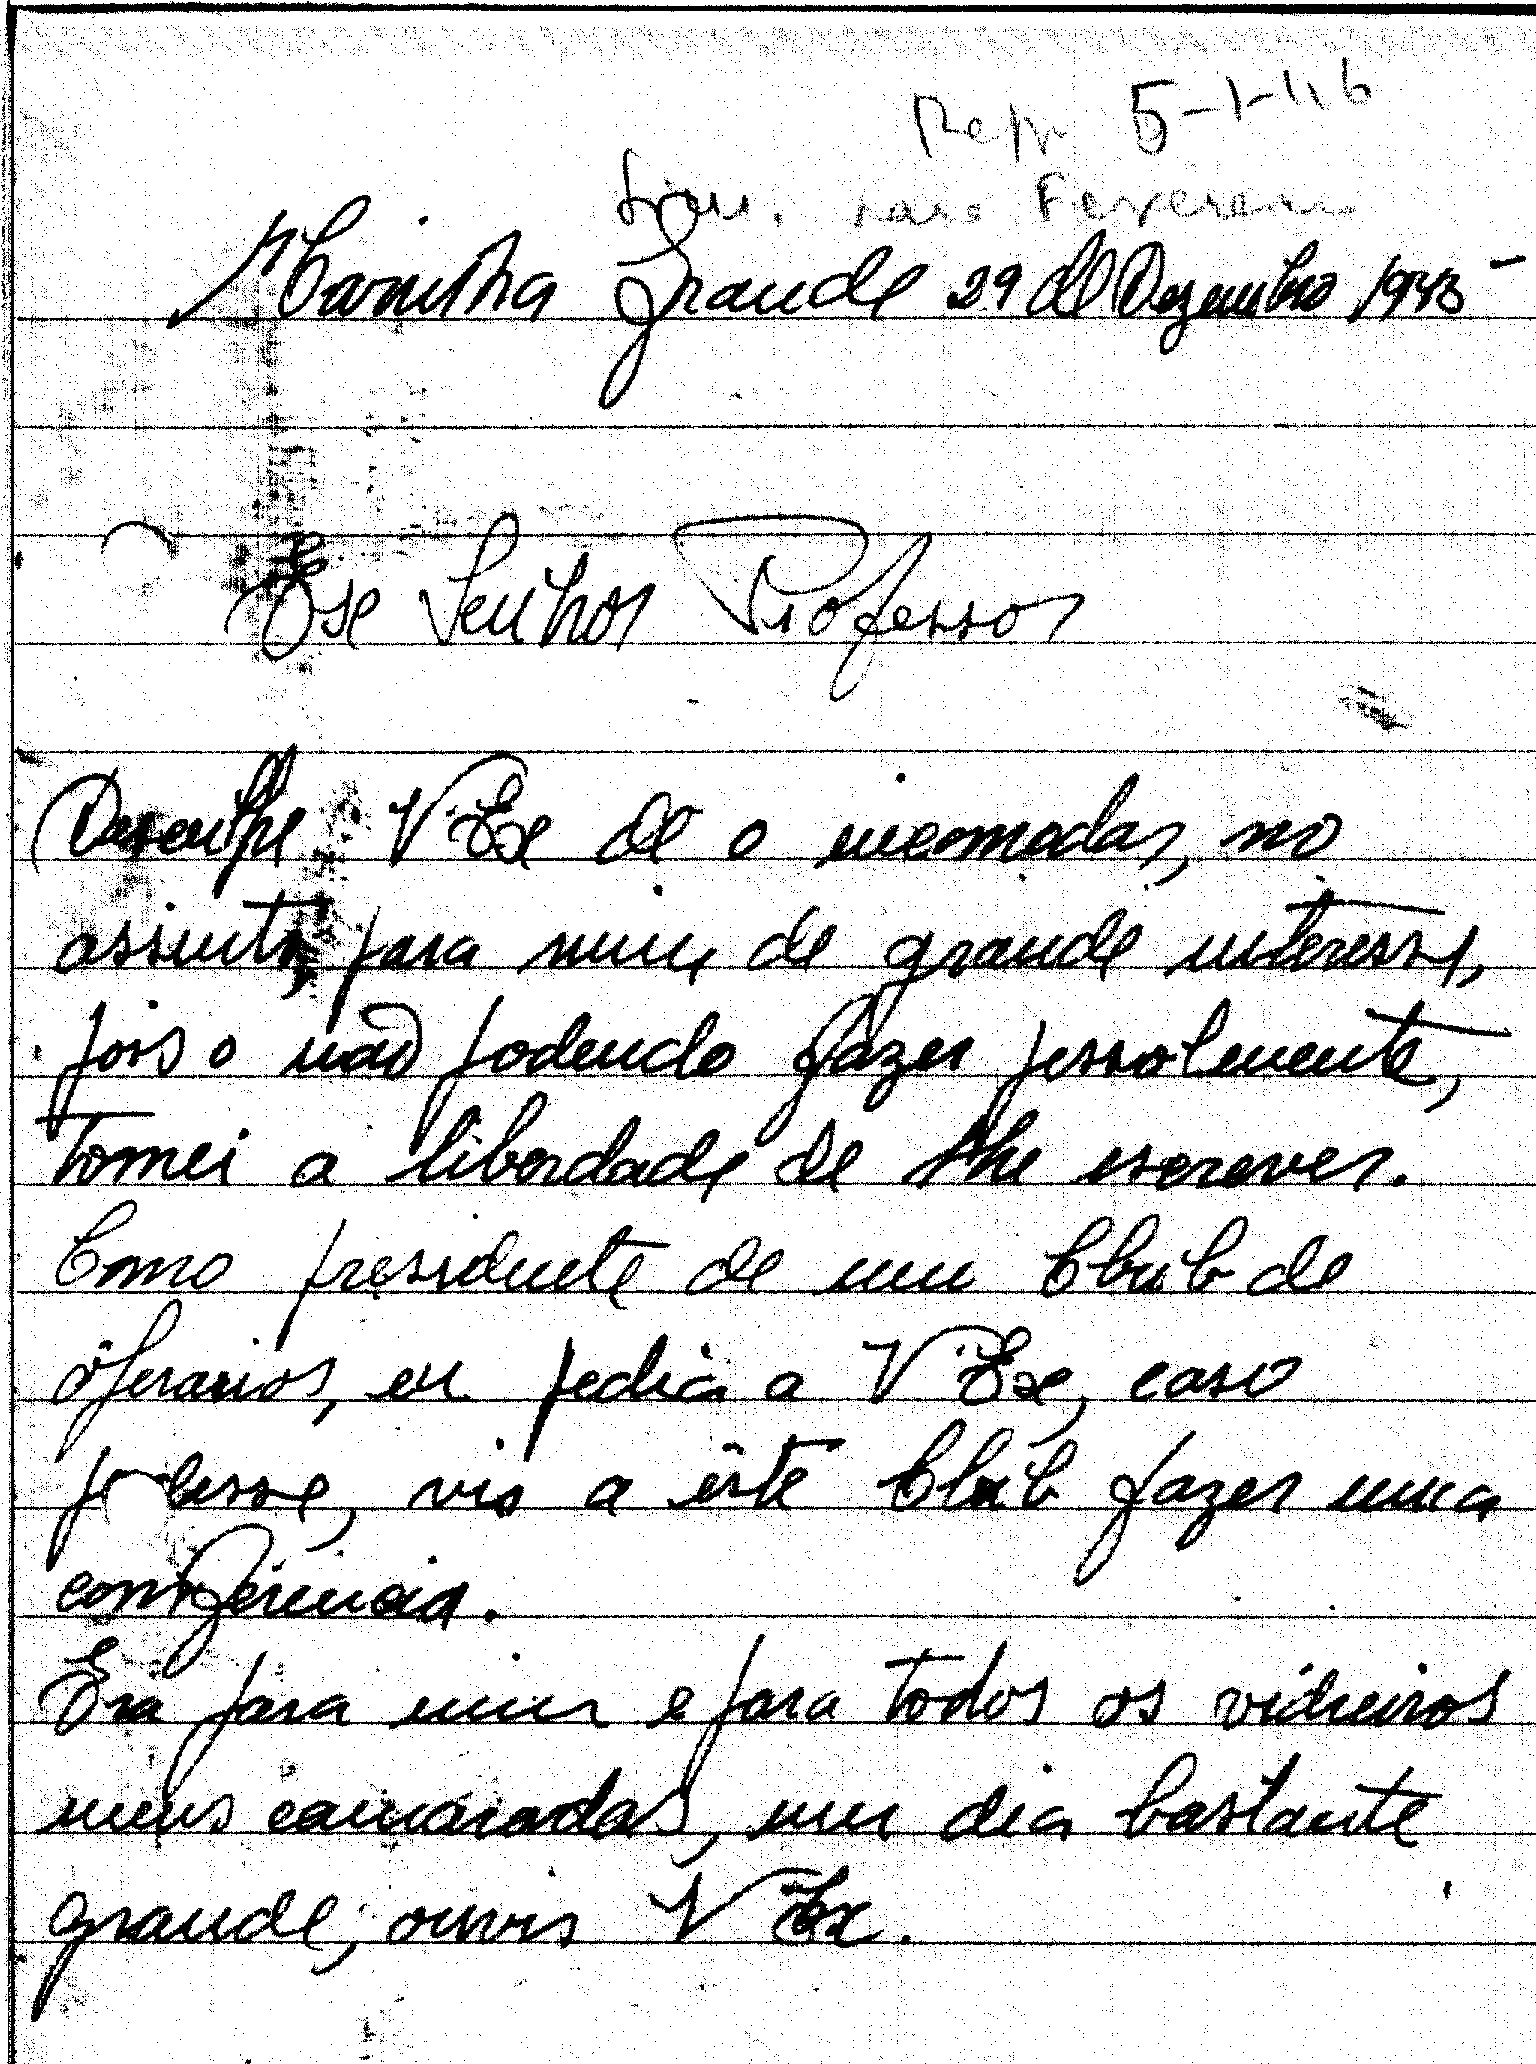 5-1-46
Sim. para Fevereiro
Marinha Grande 29 de Dezembro 1945 -
Exe Senhor Professor
Desculpe V Exe de o incomodar, no
assunto, para mim, de grande interesse,
pois o não podendo fazer pessolmente,
tomei a liberdade de lhe escrever.
Como presidente de um Club de
operarios, eu pedia a V Exe, caso
podesse, vir a êste Club fazer uma
conferencia.
Era para mim e para todos os vidreiros
meus camaradas, um dia bastante
grande, ouvir V Ex.